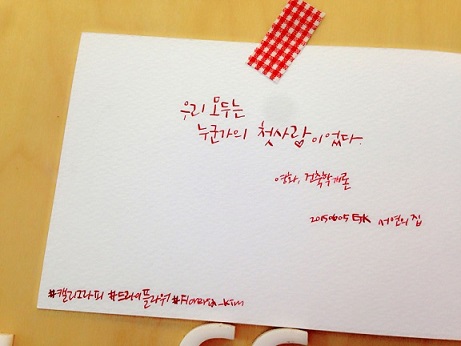 우리 모두는
누군가의 첫사랑이었다.
영화, 건축학개론
20150605 EJK 서연의 집
#캘리그라피 #드라이플라워 #Florista_Kim